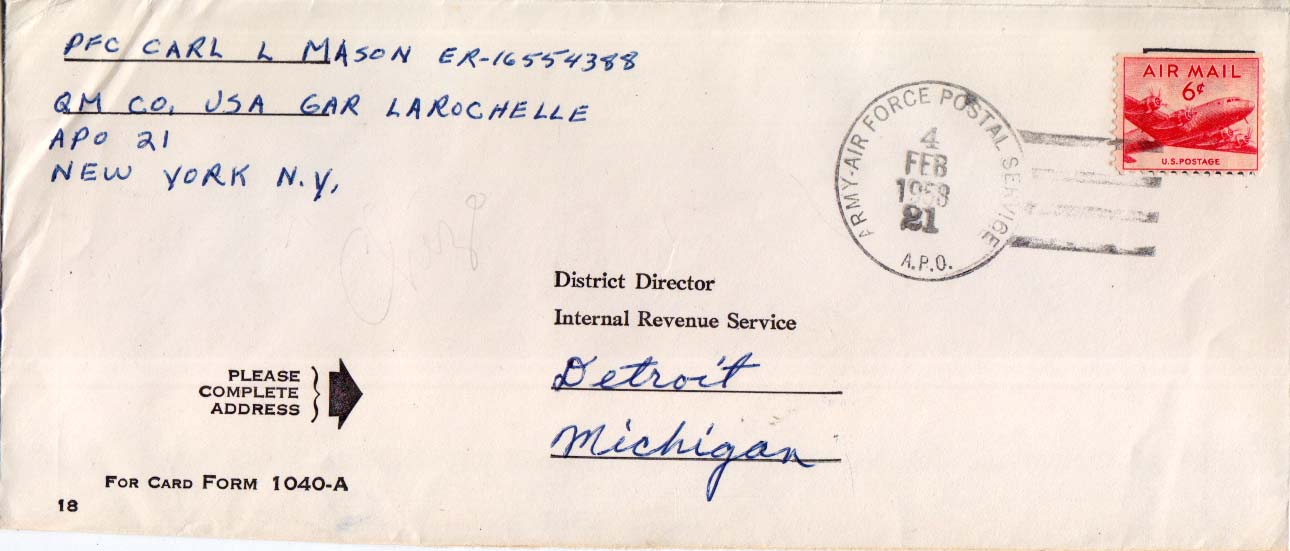 PFC CARL L MASON ER-16554388
QM CO, USA GAR LAROCHELLE
APO 21
NEW YORK N.Y,
ARMY-AIR FORCE POSTAL SERVICE
4
FEB
1958
21
A.P.O.
AIR MAIL
6¢
U.S. POSTAGE
District Director
Internal Revenue Service
Detroit
Michigan
PLEASE
COMPLETE
ADDRESS
FOR CARD FORM 1040-A
18